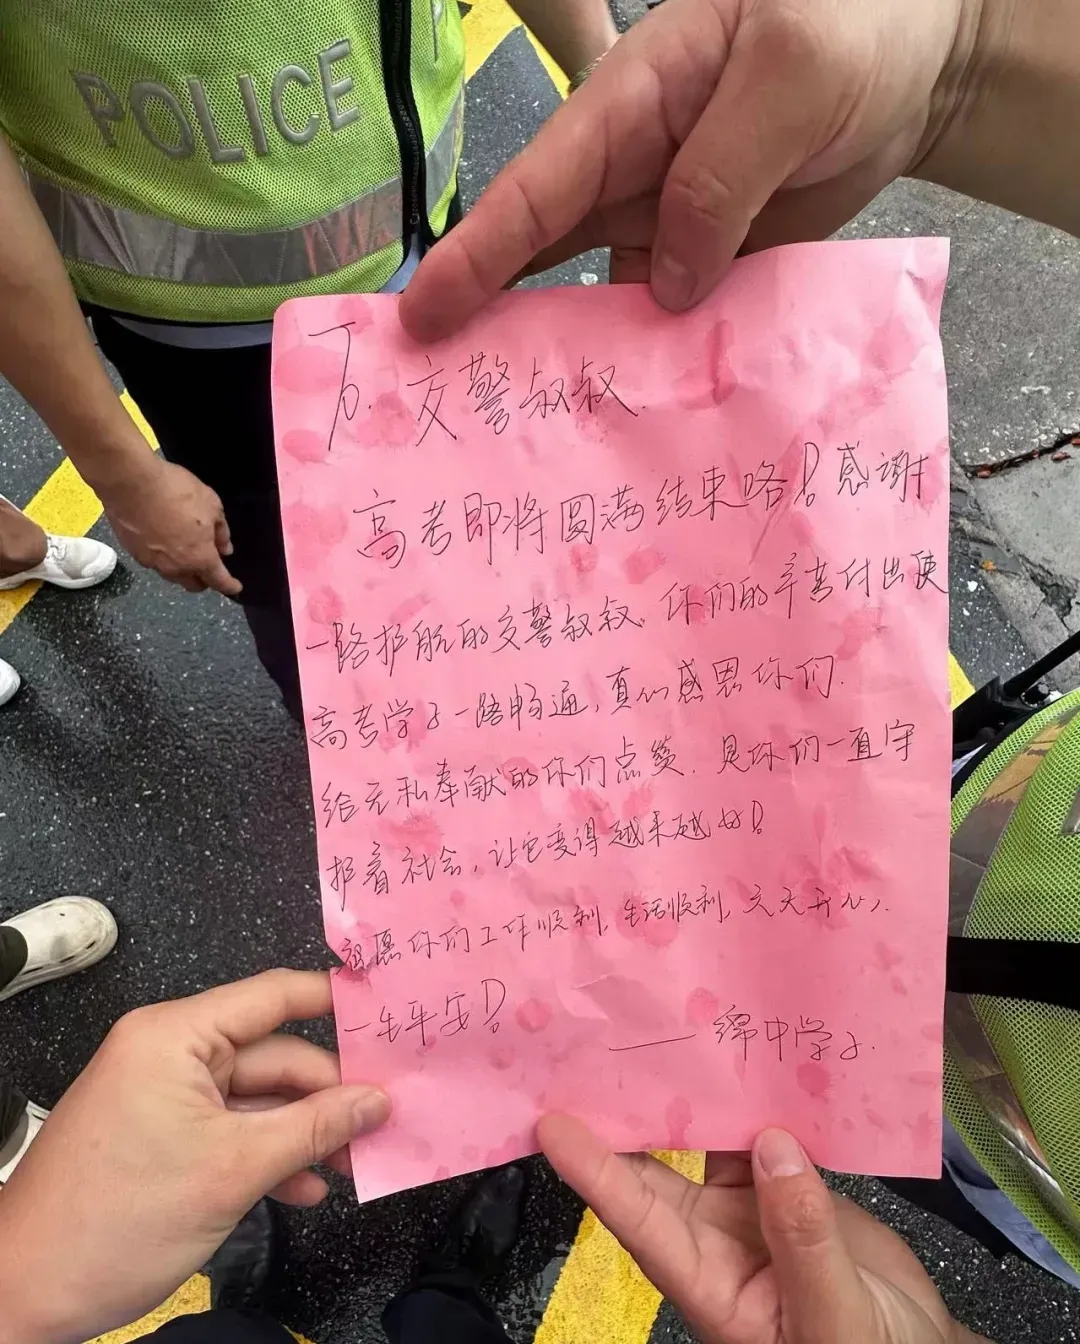 POLICE
To. 交警叔叔.
高考即将圆满结束咯!感谢
一路护航的交警叔叔,你们的辛苦付出使
高考学子一路畅通,真心感恩你们.
给无私奉献的你们点赞.是你们一直守
护着社会,让它变得越来越好!
祝愿你们工作顺利,生活顺利,天天开心,
一生平安!
——绵中学子.